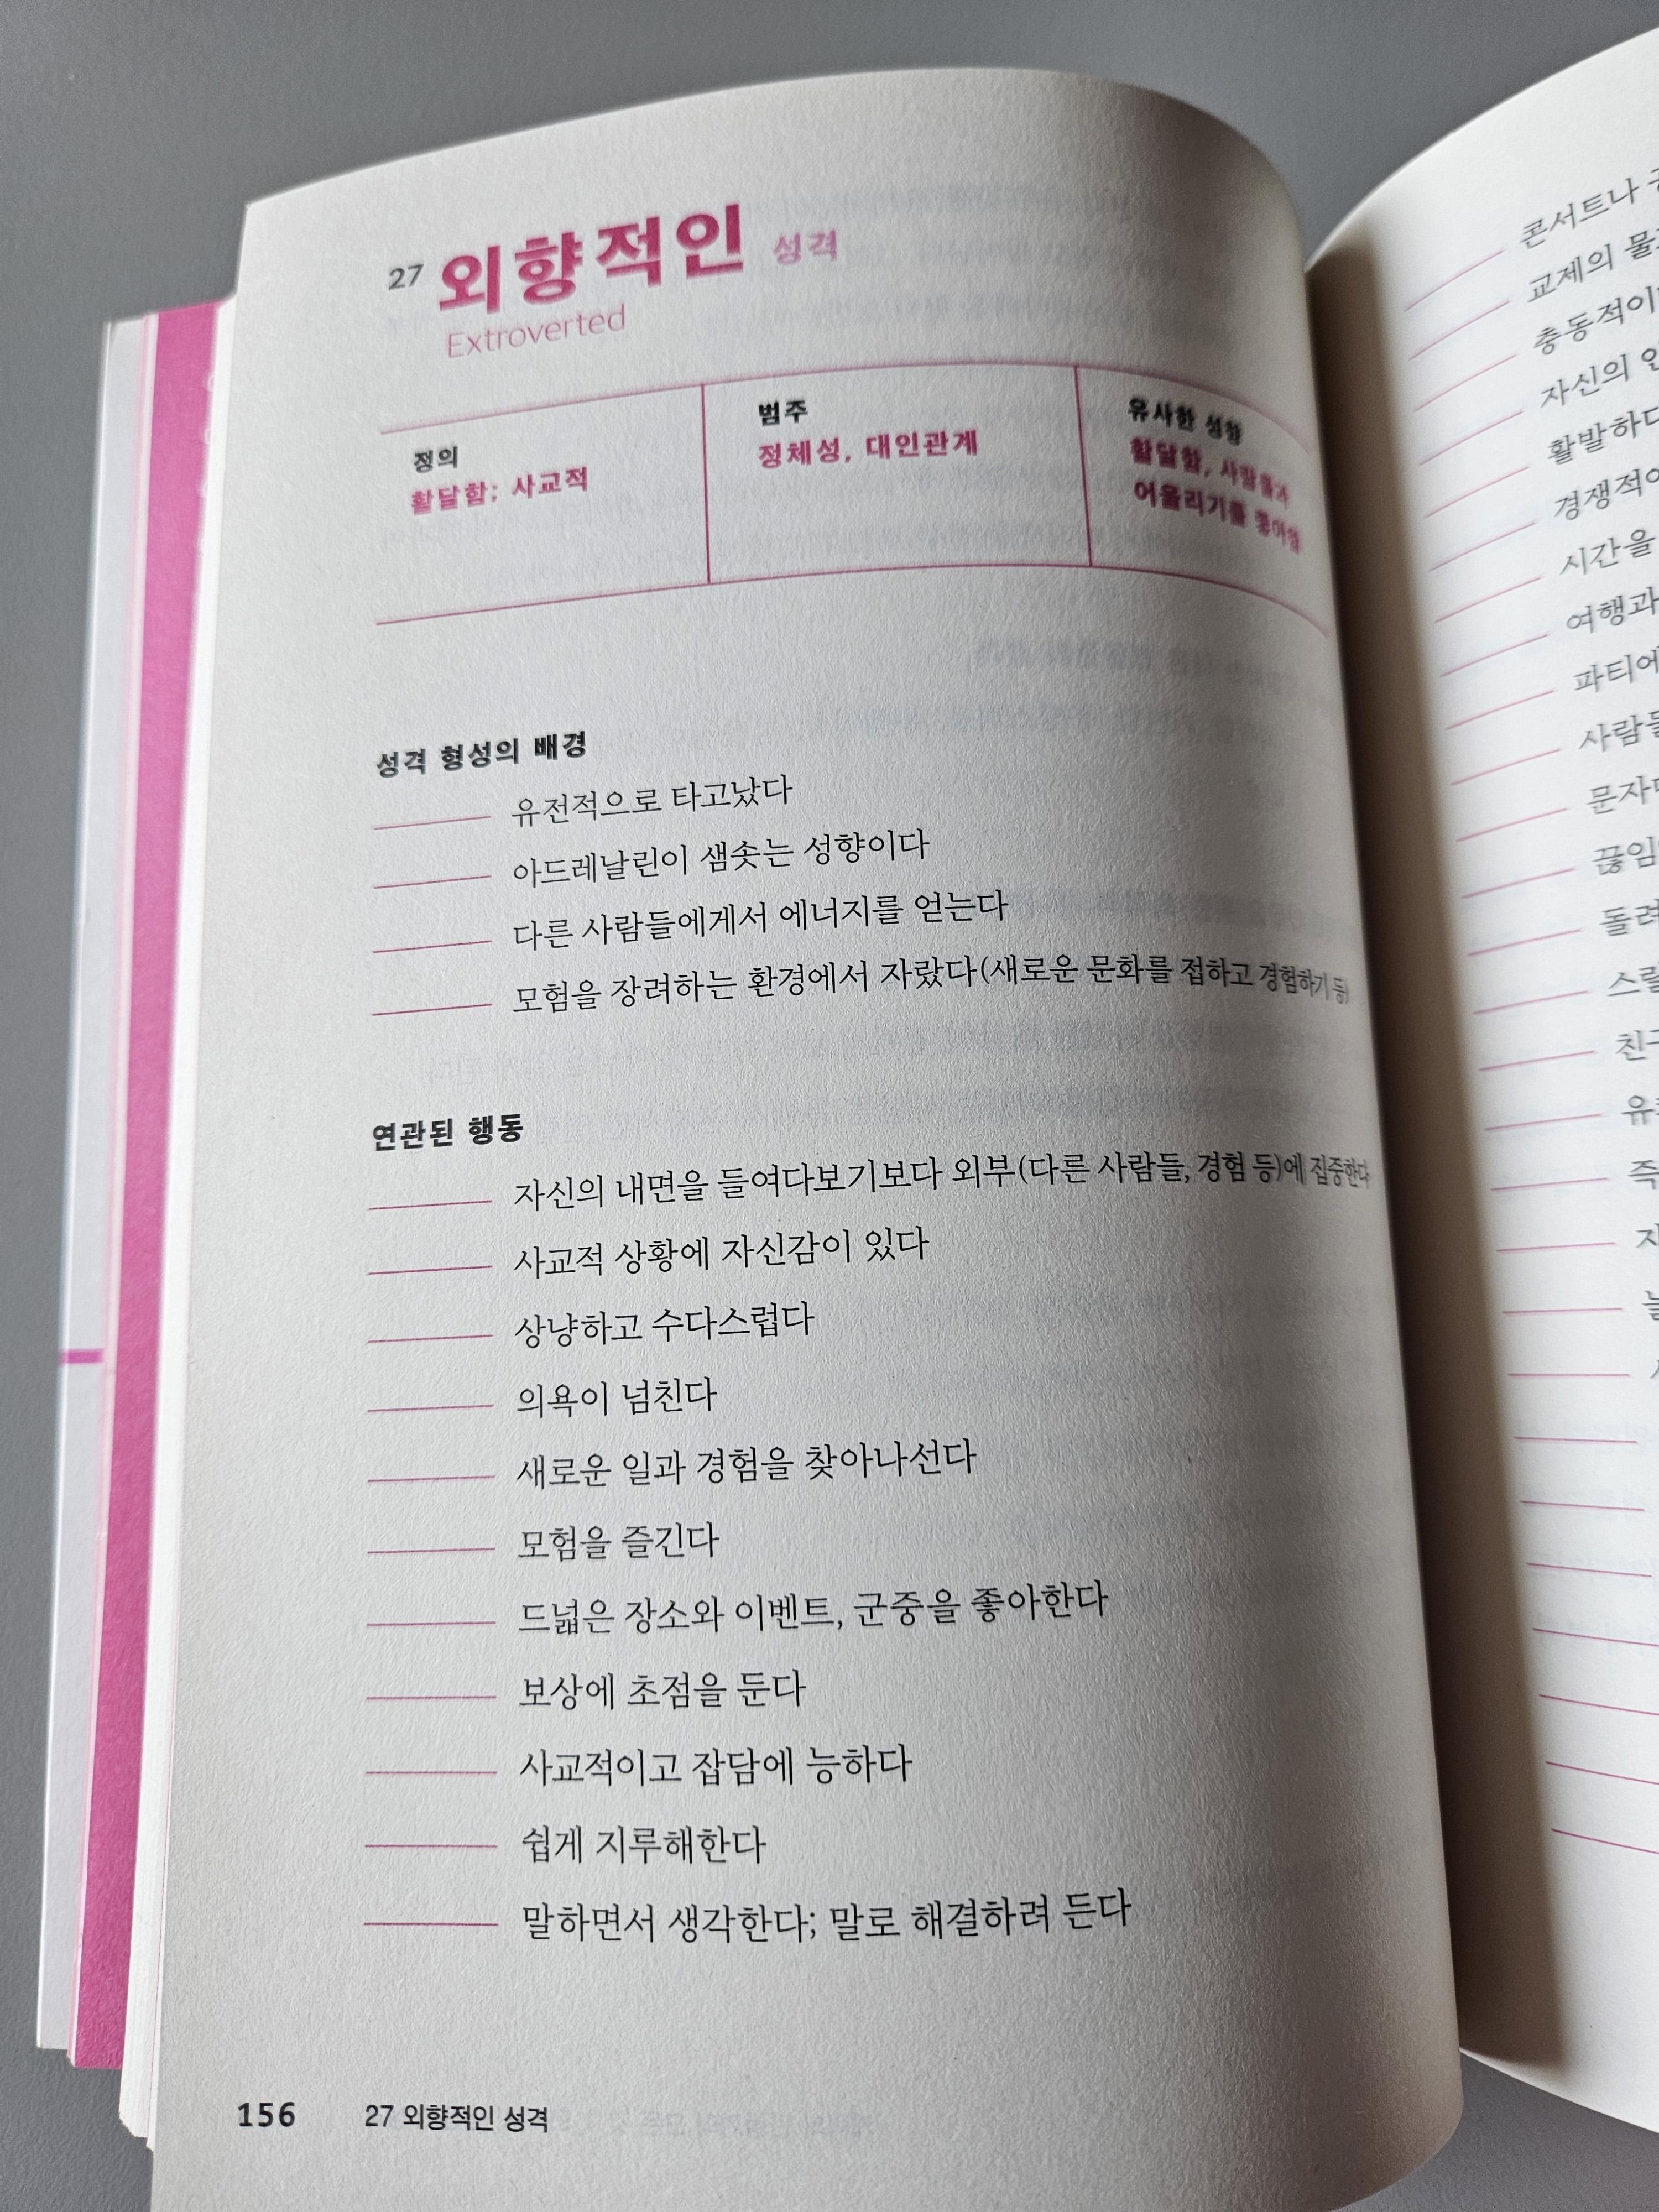 27 외향적인 성격
Extroverted
정의
활달함; 사교적
범주
정체성, 대인관계
유사한 성향
활달함, 사람들과
어울리기를 좋아함
성격 형성의 배경
유전적으로 타고났다
아드레날린이 샘솟는 성향이다
다른 사람들에게서 에너지를 얻는다
모험을 장려하는 환경에서 자랐다(새로운 문화를 접하고 경험하기 등)
연관된 행동
자신의 내면을 들여다보기보다 외부(다른 사람들, 경험 등)에 집중한다
사교적 상황에 자신감이 있다
상냥하고 수다스럽다
의욕이 넘친다
새로운 일과 경험을 찾아나선다
모험을 즐긴다
드넓은 장소와 이벤트, 군중을 좋아한다
보상에 초점을 둔다
사교적이고 잡담에 능하다
쉽게 지루해한다
말하면서 생각한다; 말로 해결하려 든다
156 27 외향적인 성격
콘서트나
교제의
자신의
시간을